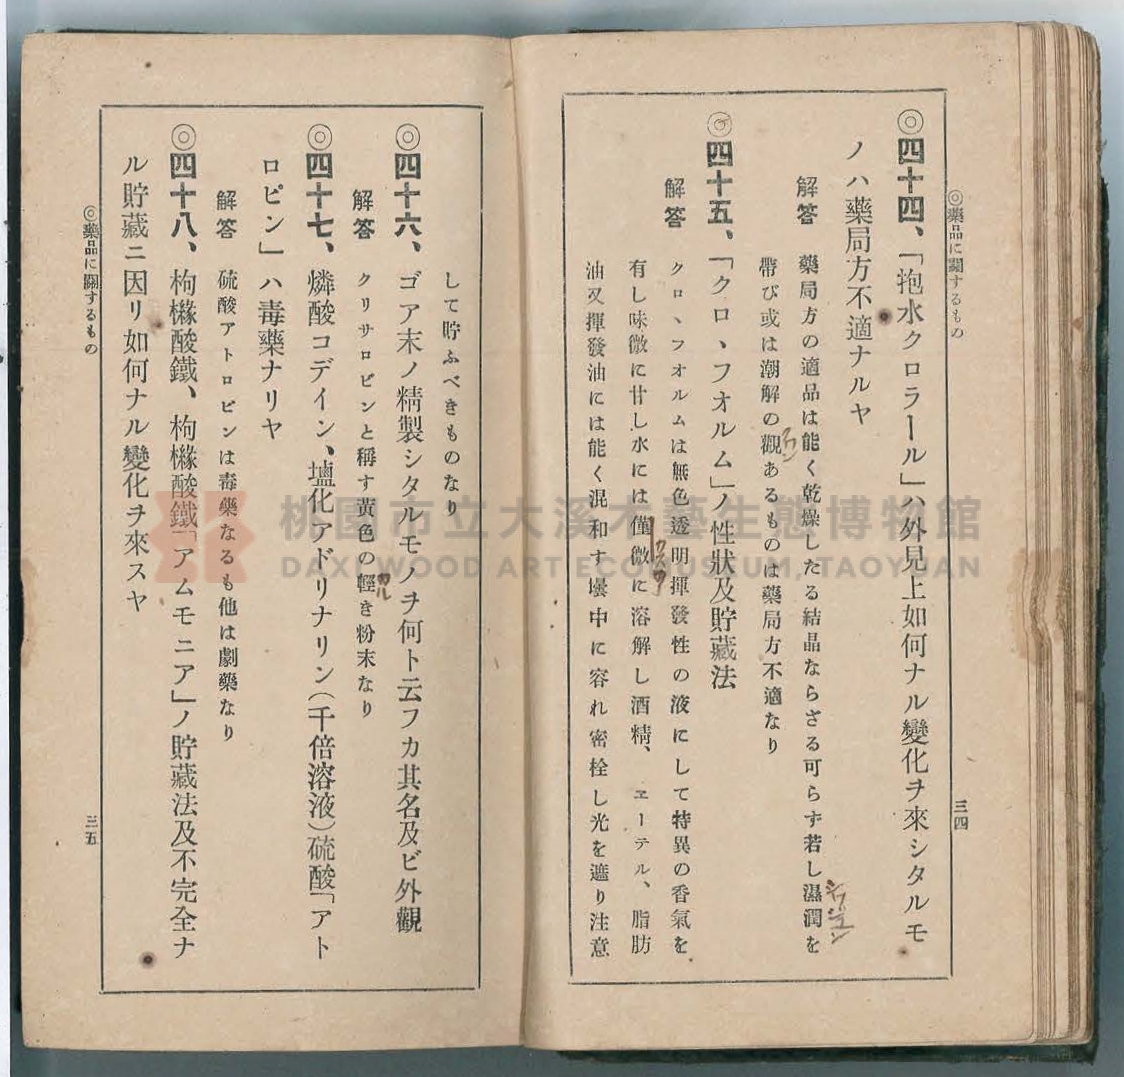 ◎藥品に關するもの
三四
◎四十四、「抱水クロラール」ハ外見上如何ナル變化ヲ來シタルモ
ノハ藥局方不適ナルヤ
解答 藥局方の適品は能く乾燥したる結晶ならさる可らず若し濕潤を
帶び或は潮解の觀あるものは藥局方不適なり
◎四十五、「クロヽフオルム」ノ性狀及貯藏法
解答 クロヽフオルムは無色透明揮發性の液にして特異の香氣を
有し味微に甘し水には僅微に溶解し酒精、ヱーテル、脂肪
油又揮發油には能く混和す壜中に容れ密栓し光を遮り注意
して貯ふべきものなり
◎四十六、ゴア末ノ精製シタルモノヲ何ト云フカ其名及ビ外觀
解答 クリサロビンと稱す黃色の輕き粉末なり
カル
◎四十七、燐酸コデイン、塩化アドリナリン(千倍溶液)硫酸「アト
ロピン」ハ毒藥ナリヤ
解答 硫酸アトロピンは毒藥なるも他は劇藥なり
◎四十八、枸櫞酸鐵、枸櫞酸鐵「アムモニア」ノ貯藏法及不完全ナ
ル貯藏ニ因リ如何ナル變化ヲ來スヤ
◎藥品に關するもの
三五
桃園市立大溪木藝生態博物館
DAXI WOOD ART ECOMUSEUM, TAOYUAN